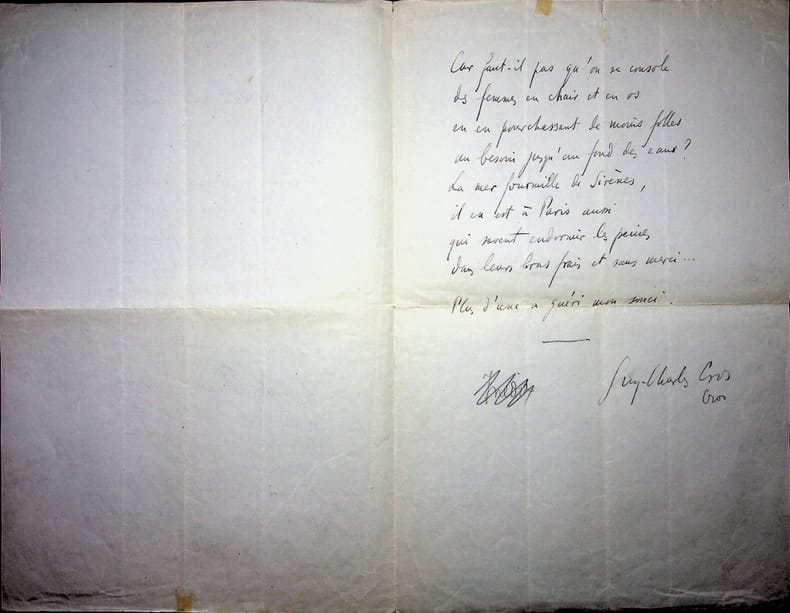 Car faut-il pas qu'on se console
des femmes en chair et en os
en en pourchassant de moins folles
au besoin jusqu'au fond des eaux ?
La mer fourmille de Sirènes,
il en est à Paris aussi
qui savent endormir les peines
dans leurs bras frais et sans merci...
Plus d'une a guéri mon souci.
Guy-Charles Cros
Cros